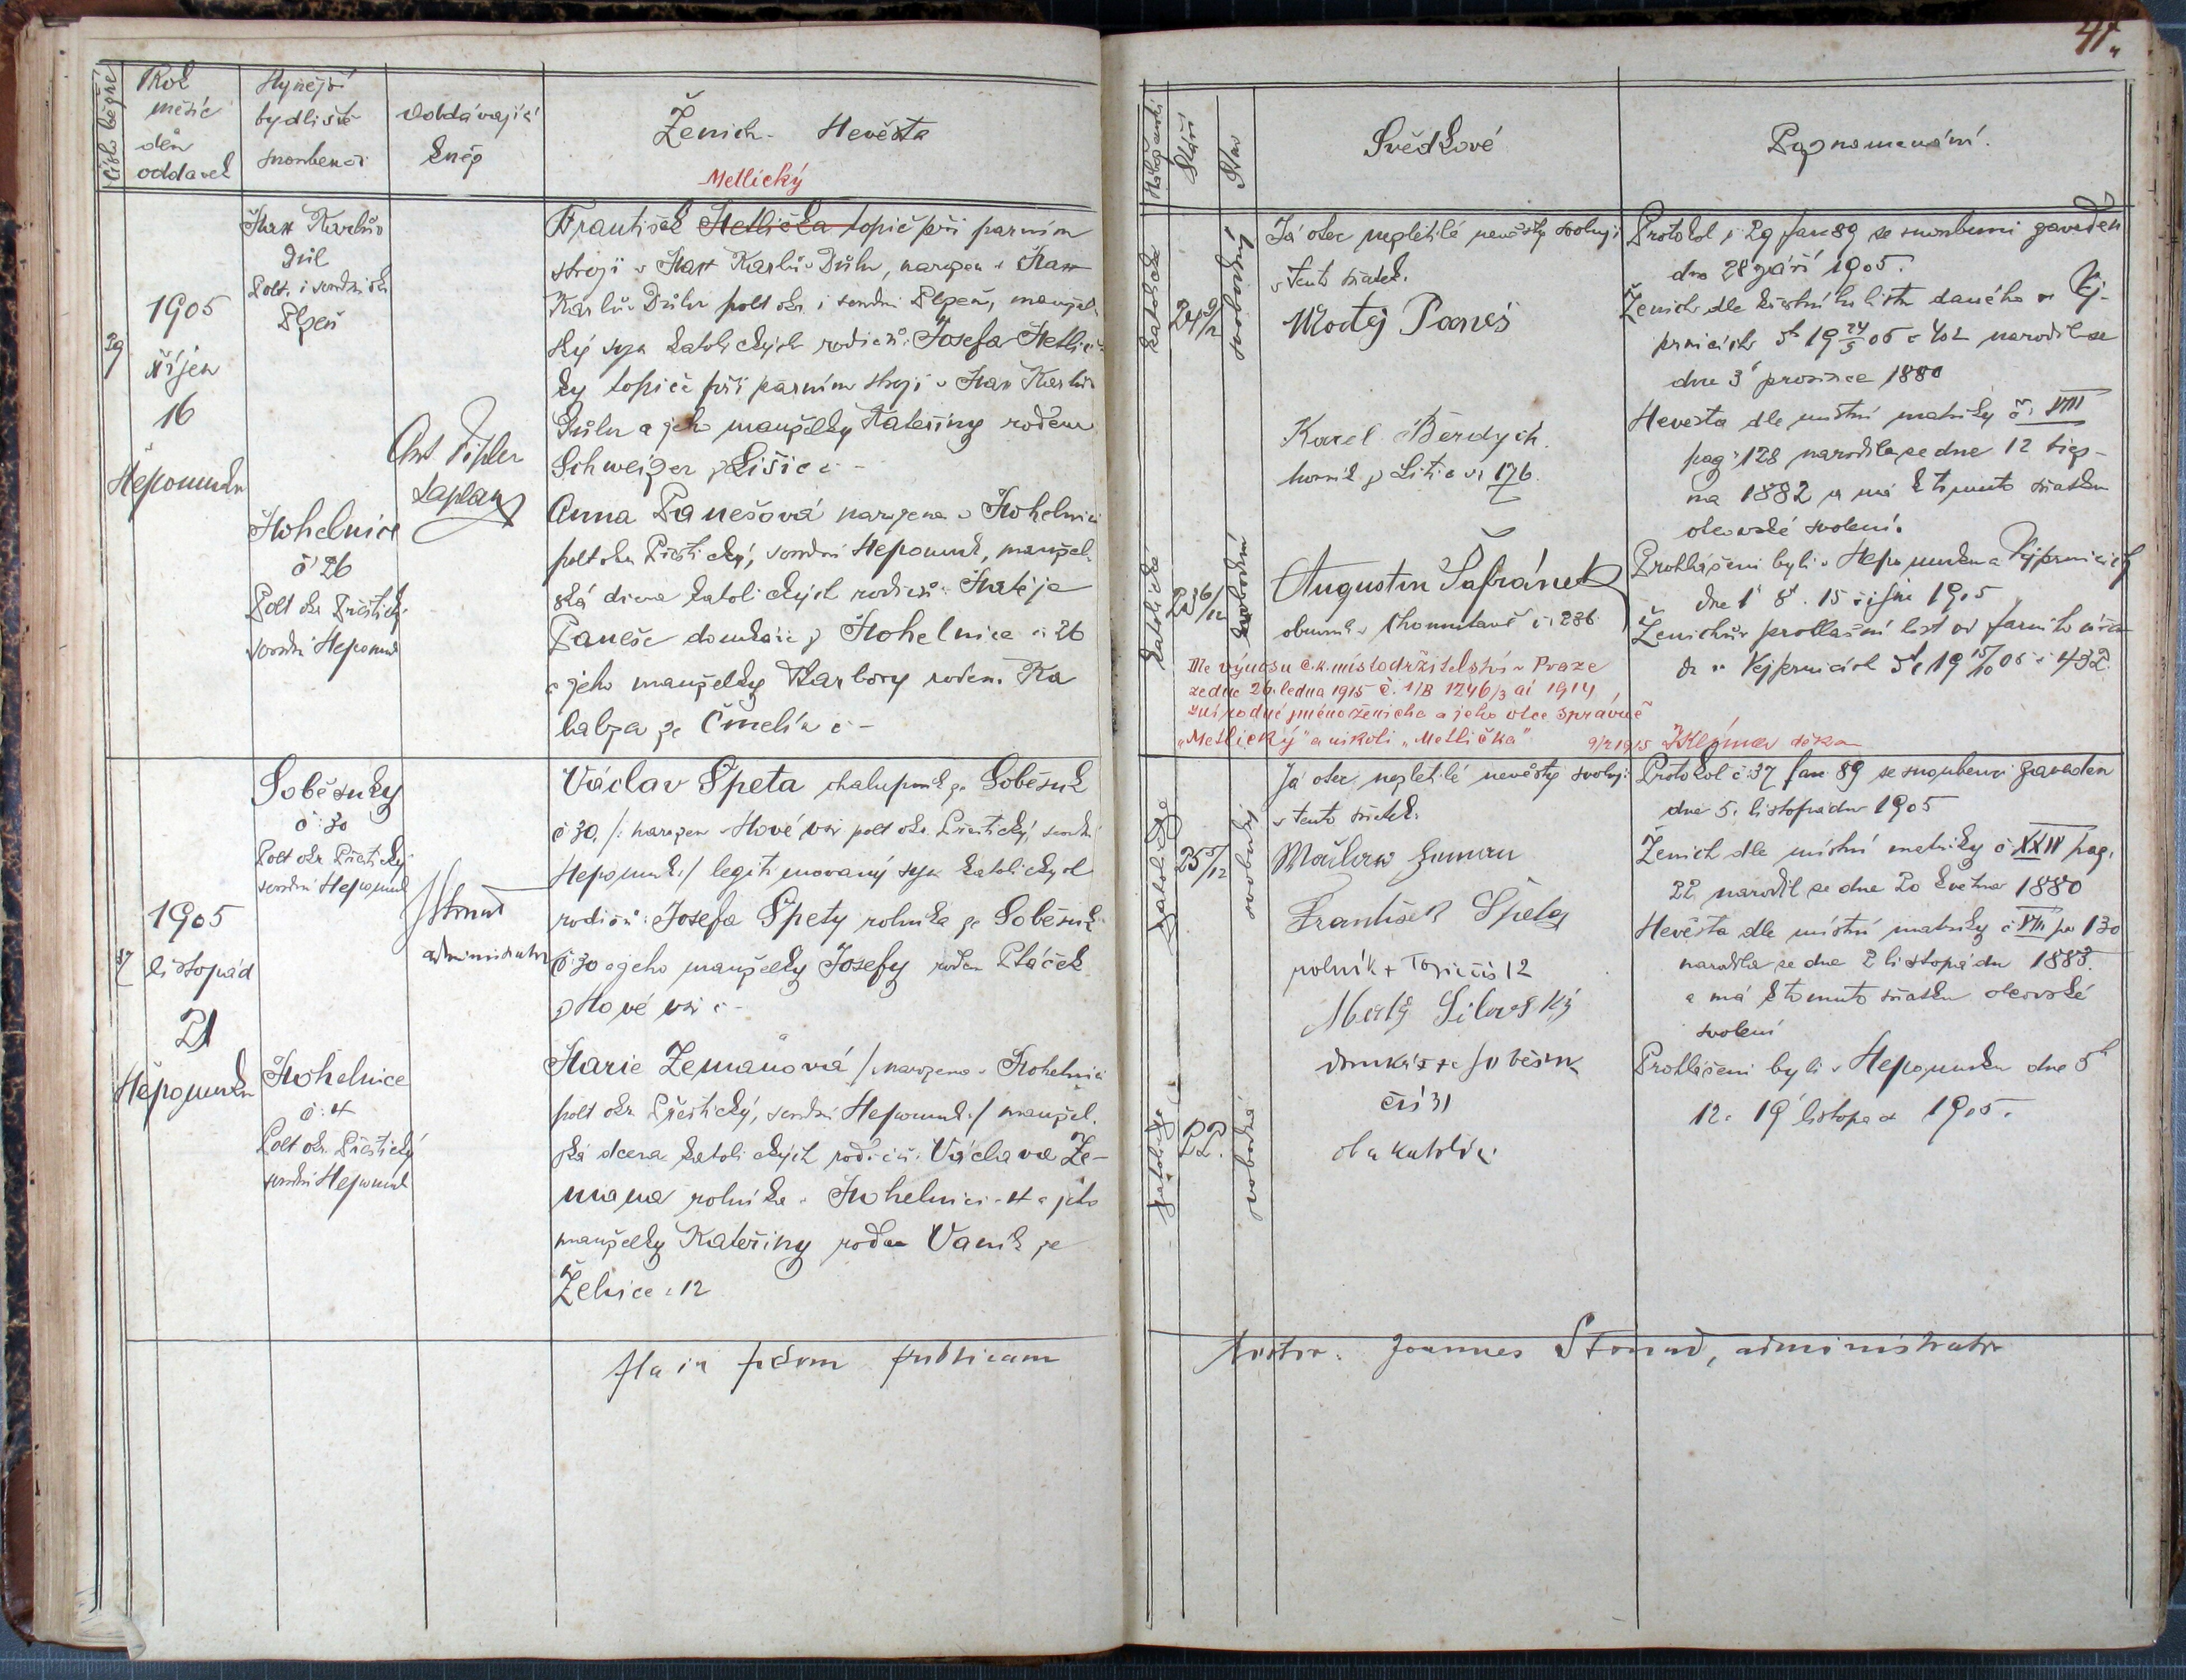 41.
Číslo běžné
Rok
měsíc
den
oddavek
Nynější
bydliště
snoubenců
Oddávající
kněz
Ženich - Nevěsta
Metlický
1905
říjen
16
Nepomuk
Důl
Polt. i soudní okr.
Plzeň
Mohelnice
č 26
Polt okr Přeštický
soudní Nepomuk
Ant.
kaplan
František Metlička topič při parním
stroji v Karlův Důlu, narozen v
Karlův Důlu polt okr. i soudní Plzeň, manžel-
ský syn katolických rodičů: Josefa Metlič-
ky topiče při parním stroji v
Důlu a jeho manželky Kateřiny rozené
Schweiger z č -
Anna Panešová narozena v Mohelnici
polt okr Přeštický, soudní Nepomuk, manžel-
ská dcera katolických rodičů: Matěje
Paneše domkáře z Mohelnice č 26
a jeho manželky Barbory rozen. Ka
babza ze Čmelín č -
29
Náboženství
Stáří
Stav
Svědkové
Poznamenání.
katolické
24 9/12
svobodný
Já otec nezletilé nevěsty svoluji
v tento sňatek.
Matěj Paneš
Karel Berdych
horník z Litic č. 176.
Augustin Šafránek
obuvník v Chomutově č. 286
katolické
23 6/12
svobodná
Protokol č 29 fasc 89 se snoubenci zaveden
dne 28 září 1905.
Ženich dle křestního listu daného ve Vej-
prnicích dt 19 24/5 05 č 402 narodil se
dne 3 prosince 1880
Nevěsta dle místní matriky č. VIII
pag. 128 narodila se dne 12 srp-
na 1882 a má k tomuto sňatku
otcovské svolení.
Prohlášeni byli v Nepomuku a Vejprnicích
dne 1 8. 15 října 1905
Ženichův prohlašní list od farního úřa-
du ve Vejprnicích dt 19 15/10 05 č 432.
Dle výnosu c.k. místodržitelství v Praze
ze dne 26. ledna 1915 č. 1/B 1246/3 ai 1914,
zní rodné jméno ženicha a jeho otce správně
„Metlický" a nikoli „Metlička" 9/2 1915 děkan
37
1905
listopad
21
Nepomuk
Soběsuky
č: 30
Polt okr. Přeštický
soudní Nepomuk
Mohelnice
č: 4
Polt okr. Přeštický
soudní Nepomuk
J Strnad
administrator
Václav Špeta chalupník ze Soběsuk
č 30 /: narozen v Nové vsi polt okr. Přeštický, soudní
Nepomuk :/ legitimovaný syn katolických
rodičů: Josefa Špety rolníka ze Soběsuk
č 30 a jeho manželky Josefy rozen Ptáček
z Nové vsi č -
Marie Zemanová /: narozena v Mohelnici
polt okr Přeštický, soudní Nepomuk :/ manžel-
ská dcera katolických rodičů: Václava Ze-
mana rolníka v Mohelnici č 4 a jeho
manželky Kateřiny rozen Vaník ze
Želvice č 12
katolické
25 5/12
svobodný
Já otec nezletilé nevěsty svoluji
v tento sňatek.
Václav Zeman
František Špeta
rolník čís 12
Matěj Silovský
domkář ze Soběsuk
čís 31
oba katolíci
katolické
22.
svobodná
Protokol č. 37 fasc 89 se snoubenci zaveden
dne 5. listopadu 1905
Ženich dle místní matriky č XXIV pag.
22 narodil se dne 20 května 1880
Nevěsta dle místní matriky č VIII pa 130
narodila se dne 2 listopadu 1883.
a má k tomuto sňatku otcovské
svolení
Prohlášeni byli v Nepomuku dne 5
12. 19 listopad 1905.
Ita in fidem publicam
testor: Joannes Strnad, administrator